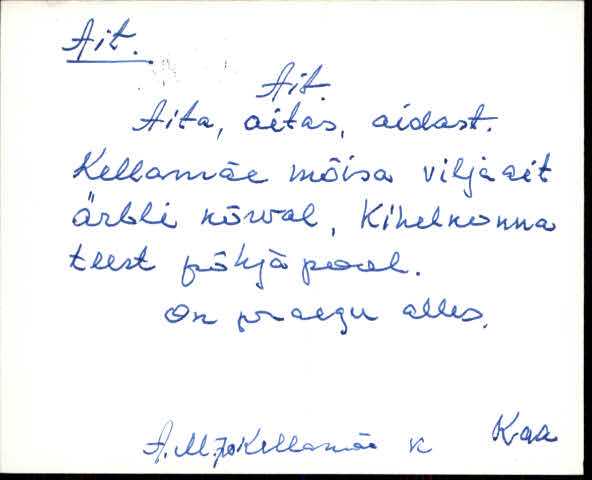 Ait.
Ait.
Aita, aitas, aidast.
Kellamäe mõisa viljaait
ärbli kõrval, Kihelkonna
teest põhjapool.
On praegu alles.
Kaa
A. M. Kellamäe k